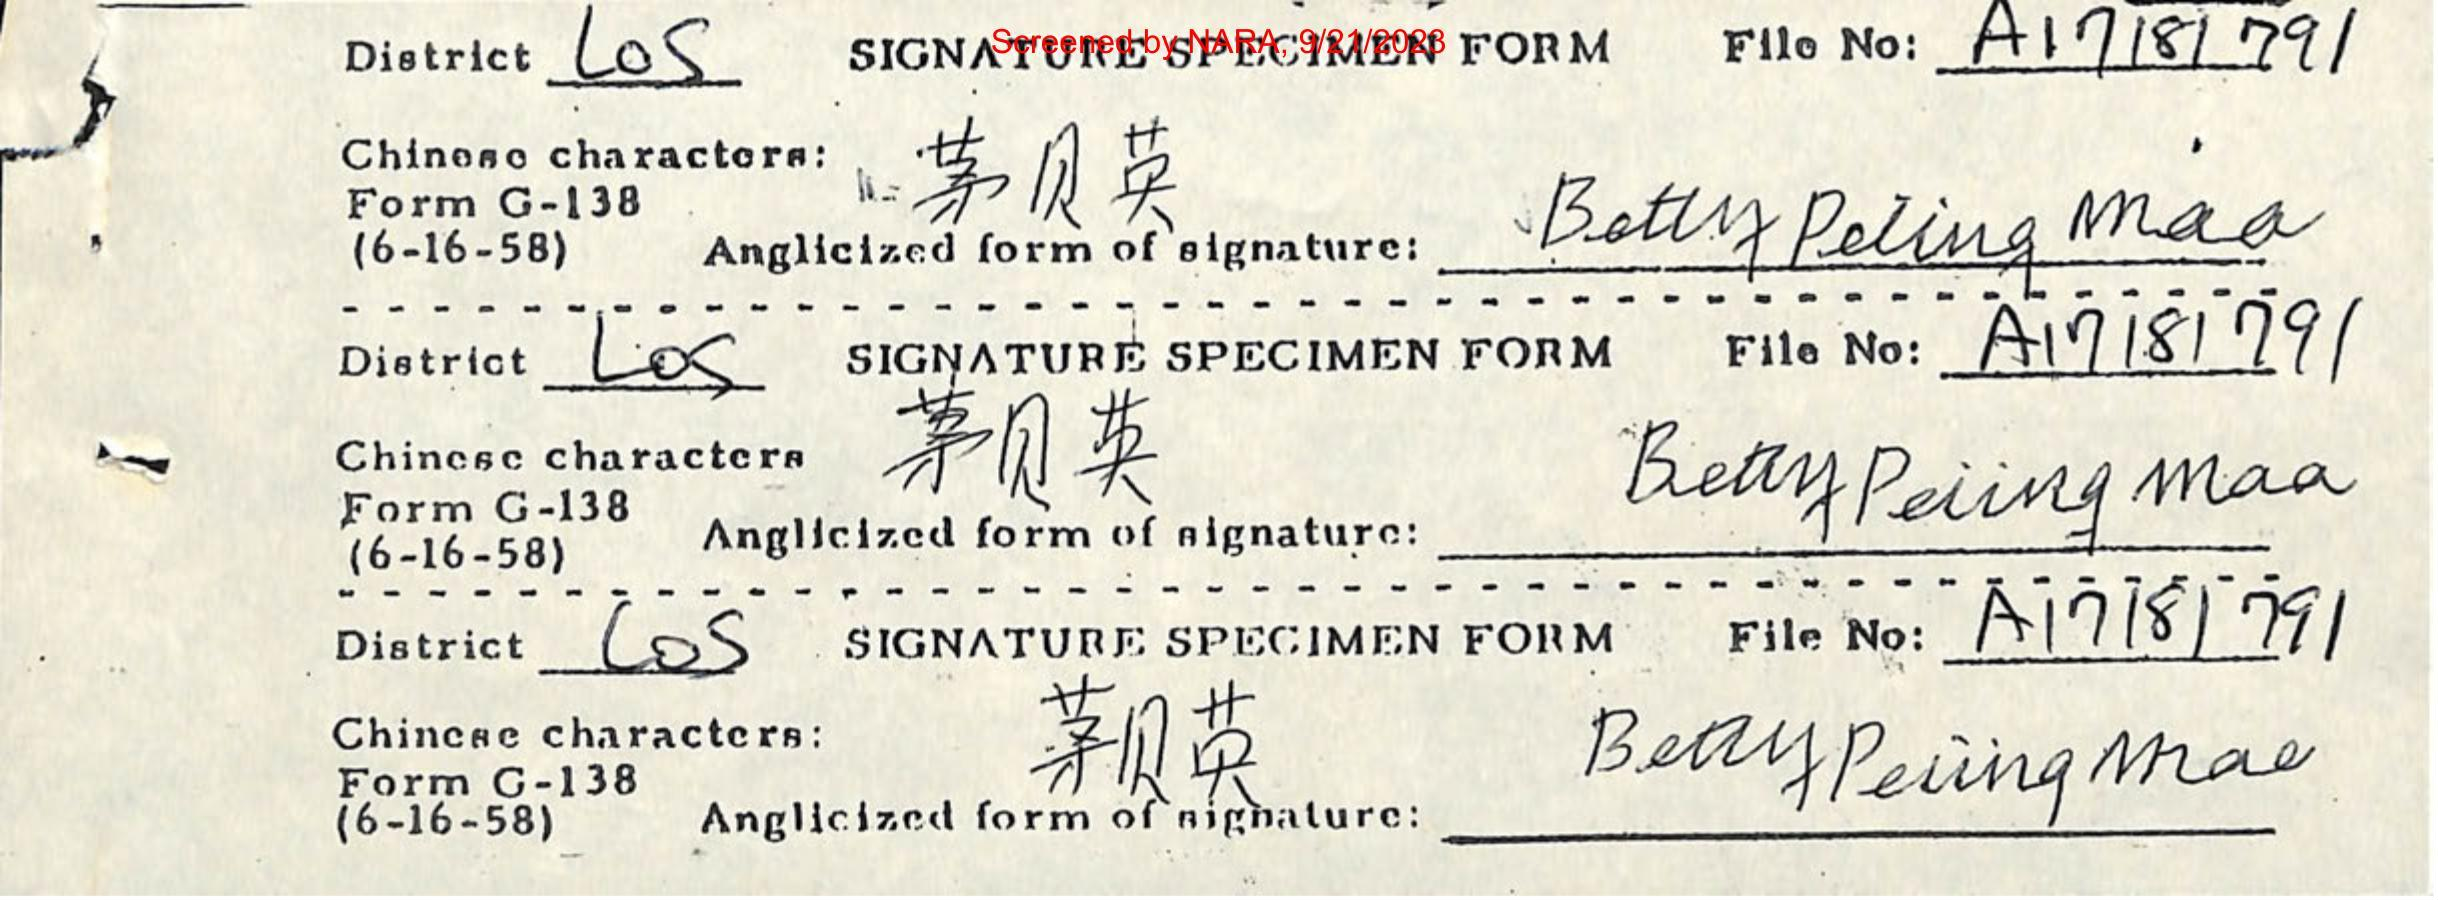 Screened by NARA, 9/21/2023
District LOS SIGNATURE SPECIMEN FORM File No: A17181791
Chinese characters: 茅贝英
Form G-138
(6-16-58) Anglicized form of signature: Betty Peiing Maa
District LOS SIGNATURE SPECIMEN FORM File No: A17181791
Chinese characters 茅贝英
Form G-138
(6-16-58) Anglicized form of signature: Betty Peiing Maa
District LOS SIGNATURE SPECIMEN FORM File No: A17181791
Chinese characters: 茅贝英
Form G-138
(6-16-58) Anglicized form of signature: Betty Peiing Maa